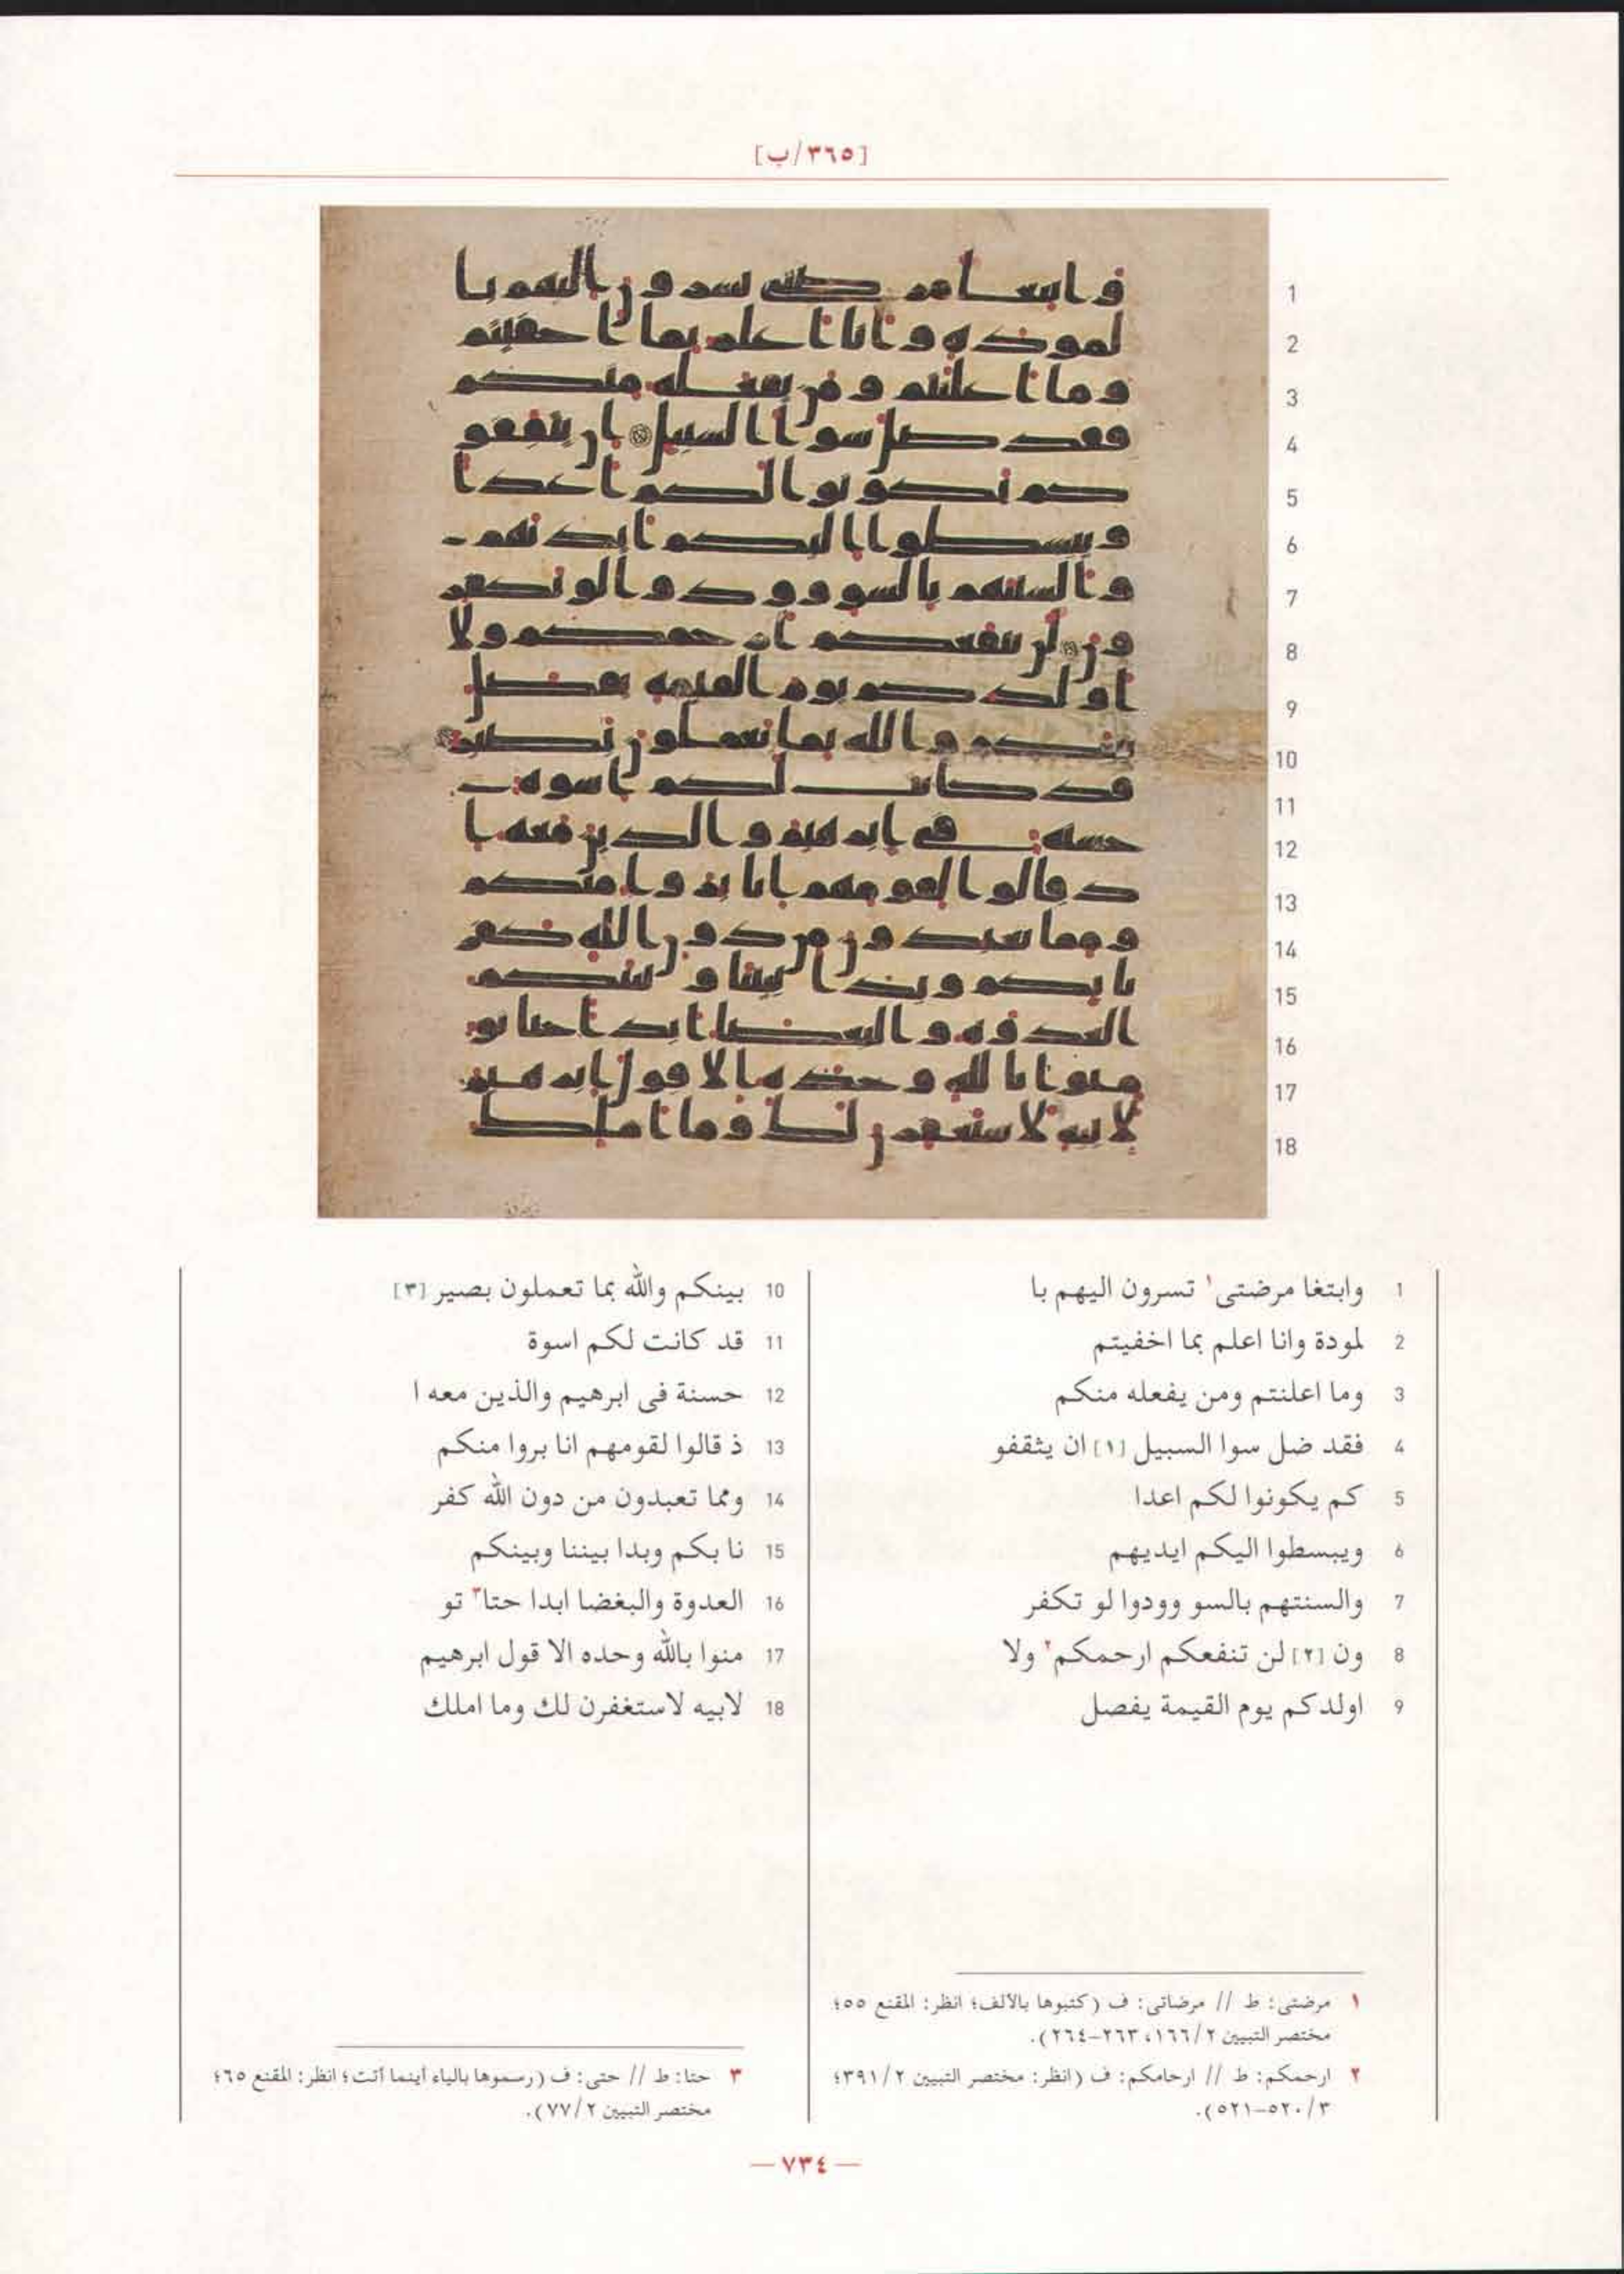 [٣٦٥/ب]
1 وابتغا مرضتى١ تسرون اليهم با
2 لمودة وانا اعلم بما اخفيتم
3 وما اعلنتم ومن يفعله منكم
4 فقد ضل سوا السبيل [١] ان يثقفو
5 كم يكونوا لكم اعدا
6 ويبسطوا اليكم ايديهم
7 والسنتهم بالسو وودوا لو تكفر
8 ون [٢] لن تنفعكم ارحمكم٢ ولا
9 اولدكم يوم القيمة يفصل
10 بينكم والله بما تعملون بصير [٣]
11 قد كانت لكم اسوة
12 حسنة فى ابرهيم والذين معه ا
13 ذ قالوا لقومهم انا بروا منكم
14 ومما تعبدون من دون الله كفر
15 نا بكم وبدا بيننا وبينكم
16 العدوة والبغضا ابدا حتا٣ تو
17 منوا بالله وحده الا قول ابرهيم
18 لابيه لاستغفرن لك وما املك
١ مرضتى: ط // مرضاتى: ف (كتبوها بالألف؛ انظر: المقنع ٥٥؛
مختصر التبيين ١٦٦/٢، ٢٦٣-٢٦٤).
٢ ارحمكم: ط // ارحامكم: ف (انظر: مختصر التبيين ٣٩١/٢؛
٥٢٠/٣-٥٢١).
٣ حتا: ط // حتى: ف (رسموها بالياء أينما أتت؛ انظر: المقنع ٦٥؛
مختصر التبيين ٧٧/٢).
— ٧٣٤ —